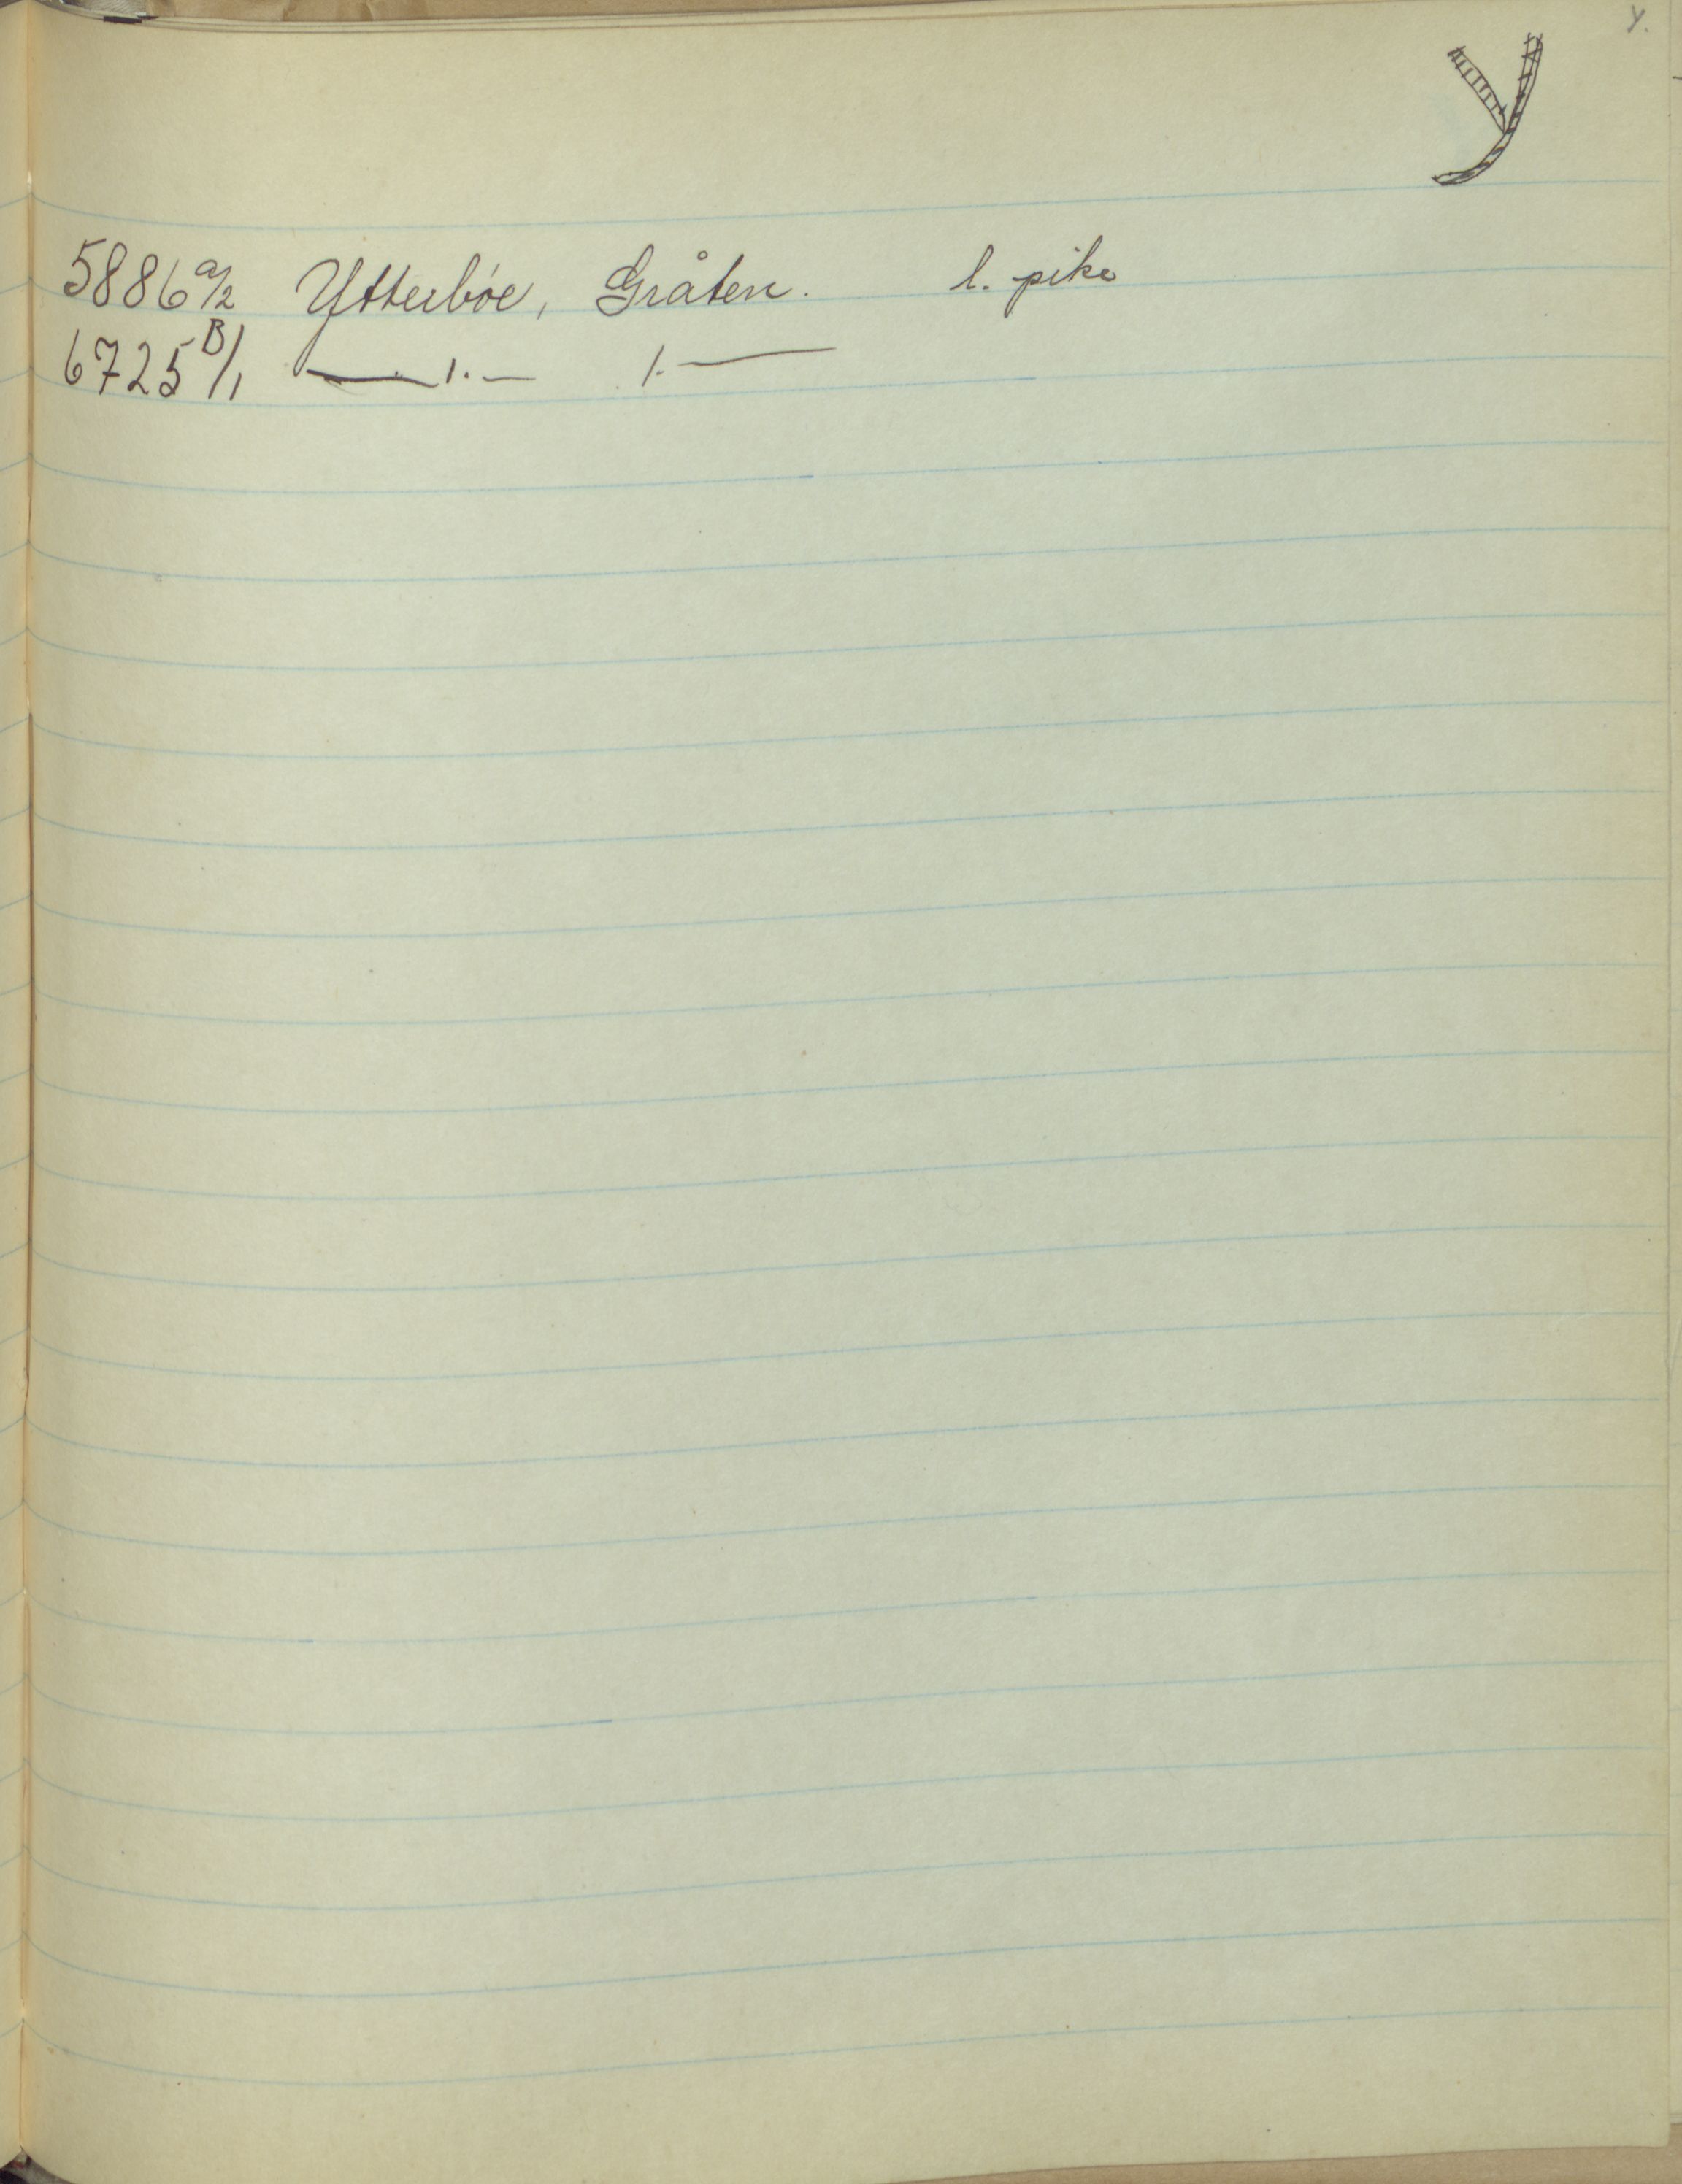 Y.
Y
5886 a/2 Ytterbøe, Gråten. l. pike
6725 B/1 —— 1. — 1. ——